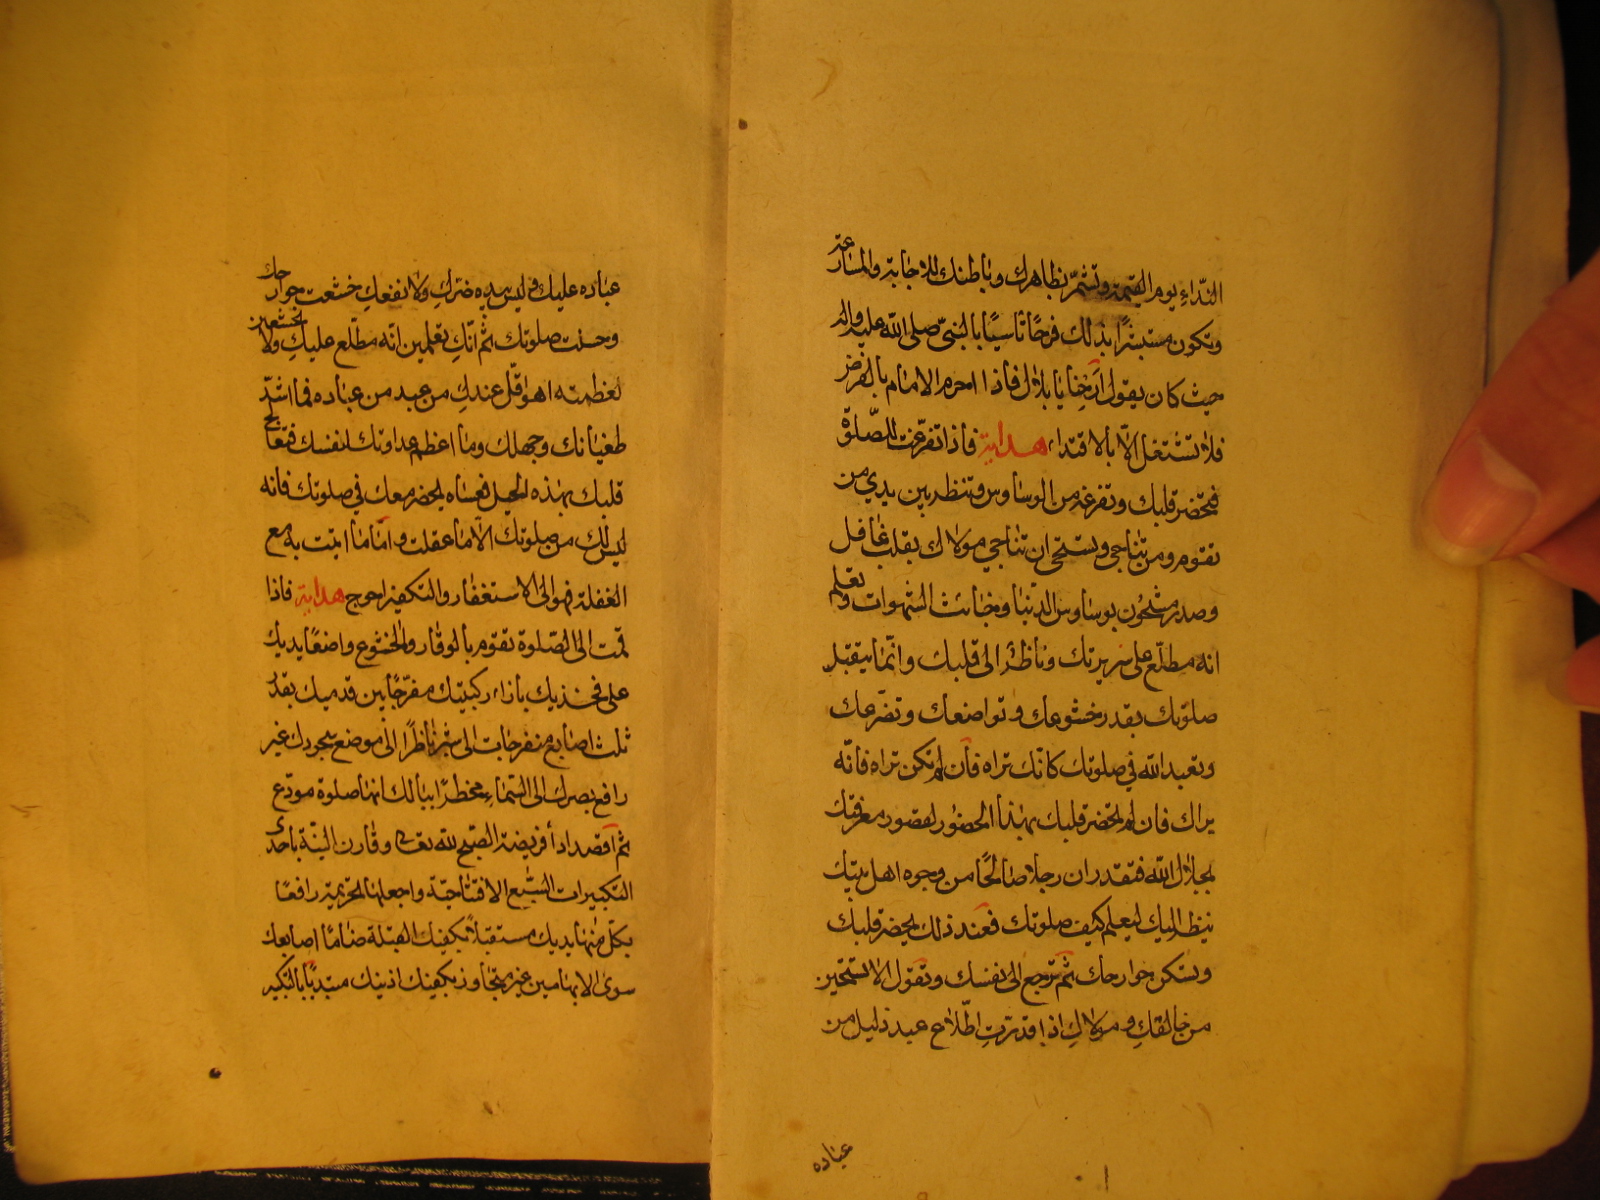 النداء يوم القيمة وتشمر بظاهرك وباطنك للاجابة والمسارعة
وتكون مستبشرا بذلك فرحا تاسيا بالنبي صلى الله عليه واله
حيث كان يقول ارحنا يا بلال فاذا احرم الامام بالفرض
فلا تشتغل الا بالاقتداء هداية فاذا تفرغت للصلوة
فتحضر قلبك وتفرغه من الوساوس وتنظر بين يدي من
تقوم ومن تناجي وتستحي ان تناجي مولاك بقلب غافل
وصدر مشحون بوساوس الدنيا وخبائث الشهوات وتعلم
انه مطلع على سريرتك وناظر الى قلبك وانما يتقبل
صلوتك بقدر خشوعك وتواضعك وتضرعك
وتعبد الله في صلوتك كانك تراه فان لم تكن تراه فانه
يراك فان لم تحضر قلبك بهذا الحضور لقصور معرفتك
بجلال الله فتقدر ان رجلا صالحا من وجوه اهل بيتك
ينظر اليك ليعلم كيف صلوتك فعند ذلك يحضر قلبك
وتسكن جوارحك ثم ترجع الى نفسك وتقول الا تستحين
من خالقك ومولاك اذا قدرت اطلاع عبد ذليل من
عباده
عباده عليك ليس بيده ضرك ولا نفعك خشعت جوارحك
وحسنت صلوتك ثم انك تعلمين انه مطلع عليك ولا تخشعين
لعظمته اهو اقل عندك من عبد من عباده فما اشد
طغيانك وجهلك وما اعظم عداوتك لنفسك فتعالج
قلبك بهذه الحيل فعساه يحضر معك في صلوتك فانه
ليس لك من صلوتك الا ما عقلت واما ما اتيت به مع
الغفلة فهو الى الاستغفار والتكفير احوج هداية فاذا
قمت الى الصلوة تقوم بالوقار والخشوع واضعا يديك
على فخذيك بازاء ركبتيك مفرجا بين قدميك بقدر
ثلث اصابع منفرجات الى شبر ناظرا الى موضع سجودك غير
رافع بصرك الى السماء مخطرا ببالك انها صلوة مودع
ثم اقصد اداء فريضة الصبح لله تعالى وقارن النية باحدى
التكبيرات السبع الافتتاحية واجعلها تحريمة رافعا
بكل منها يديك مستقبلا بكفيك القبلة ضاما اصابعك
سوى الابهامين غير متجاوز بكفيك اذنيك مبتديا بالتكبير